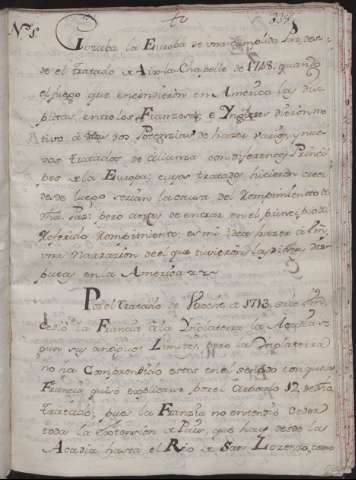 Gozaba la Europa de una cumplida Paz, des-
de el tratado de Aix-la Chapelle de 1748. quando
el fuego que encendieron en America las dis-
putas, entre los Franzeses, e Yngleses dieron mo-
tivo a dhas dos Potencias de hazer varios, y nue-
vos tratados de alianza con diferentes Princi-
pes de la Europa; cuyos tratados hicieron creer
desde luego serian la causa del Rompimiento de
dha. paz: pero antes de entrar en el
referido Rompimiento, es mi idea hazer a
una Narrazion de el que tuvieron las dichas dis-
putas en la America
Por el tratado de de 1713, entre
cedio la Francia a la Ynglaterra la Acadia se-
gun sus antiguos Limites, pero la Ynglaterra
no ha Comprendido estos en el sentido con que la
Francia quiso explicarse por el Articulo 12 de dho
tratado; pues la Francia no entendio Ceder
toda la extension de Pais, que hay desde la
Acadia hasta el Rio de San Lorenzo, como